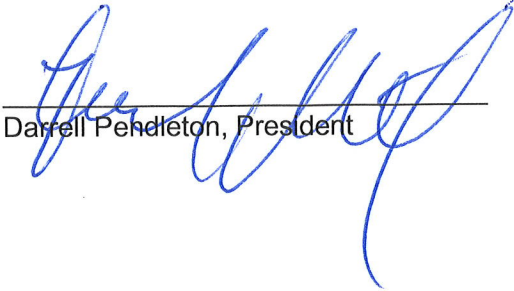 Darrell Pendleton, President